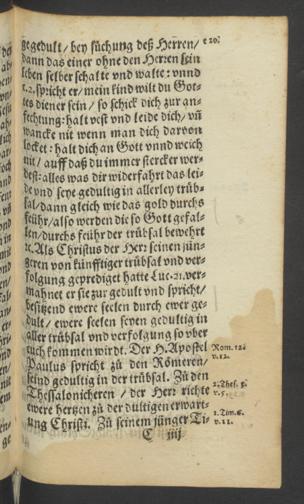 ge gedult / bey süchung deß Herren / e 20.
dann das einer ohne den Herren sein
leben selber schalte vnd walte: vnnd
c. 2. spricht er / mein kind wilt du Got-
tes diener sein / so schick dich zur an-
fechtung: halt vest vnd leide dich / vñ
wancke nit wenn man dich daruon
locket: halt dich an Gott vnnd weich
nit / auff daß du immer stercker wer-
dest: alles was dir widerfahrt das lei-
de vnd seye gedultig in allerley trüb-
sal / dann gleich wie das gold durchs
feühr / also werden die so Gott gefal-
len / durchs feühr der trübsal bewehrt
ꝛc. Als Christus der Herr seinen jün-
geren von künfftiger trübsal vnd ver-
folgung geprediget hatte Luc. 21. ver-
mahnet er sie zur gedult vnd spricht /
besitzend ewere seelen durch ewer ge-
dult / ewere seelen seyen gedultig in
aller trübsal vnd verfolgung so vber
euch kommen wirdt. Der H. Apostel Rom. 12.
Paulus spricht zů den Römeren / v. 12.
seind gedultig in der trübsal. Zů den
Thessalonicheren / der Herr richte 2. Thes. 3. v. 5.
ewere hertzen zů der dultigen erwart-
ung Christi. Zů seinem jünger Ti- 1. Tim. 6. v. 11.
C iiij